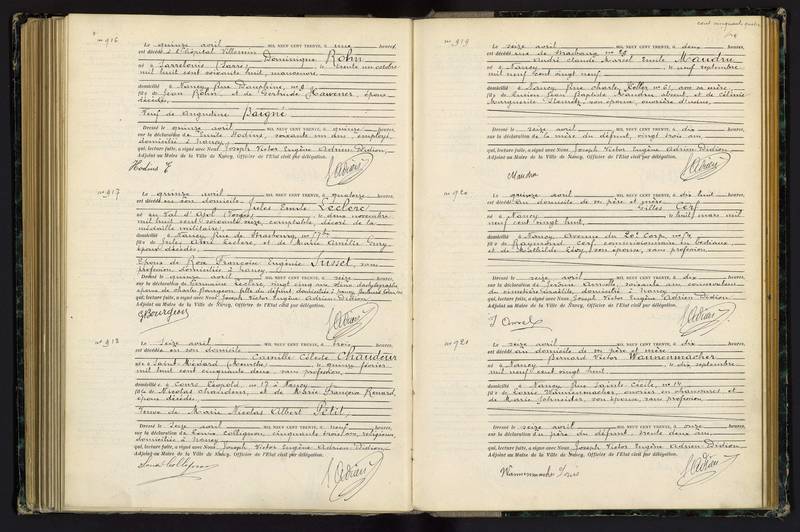 cent cinquante quatre
n° 916
Le quinze avril MIL NEUF CENT TRENTE, à une heures,
est décédé à l'hôpital Villemin
Dominique Rohn
né à Sarrelouis (Sarre), le trente un octobre
mil huit cent soixante huit, manoeuvre,
domicilié à Nancy, Rue Dauphine, n°
fils de Jean Rohn et de Gertrude Hawener, époux
décédés,
Veuf de Augustine Baigné
Dressé le quinze avril MIL NEUF CENT TRENTE, à quinze heures,
sur la déclaration de Emile Hodius, soixante un ans, employé,
domicilié à Nancy,
qui, lecture faite, a signé avec Nous Joseph Victor Eugène Adrien Didion
Adjoint au Maire de la Ville de Nancy, Officier de l'Etat civil par délégation.
Hodius E
n° 917
Le quinze avril MIL NEUF CENT TRENTE, à quatorze heures,
est décédé en son domicile
Jules Emile Leclerc
né au Val d'Ajol (Vosges) le onze novembre
mil huit cent soixante onze, comptable, décoré de la
médaille militaire,
domicilié à Nancy, Rue de Strasbourg, n°
fils de Jules Aimé Leclerc, et de Marie Amélie Gury,
époux décédés,
Epoux de Rose Françoise Eugénie Susset, sans
profession domiciliée à Nancy,
Dressé le quinze avril MIL NEUF CENT TRENTE, à seize heures,
sur la déclaration de Germaine Leclerc, vingt cinq ans, sténo dactylographe,
épouse de Charles Bourgeois, fille du défunt, domiciliée à Nancy,
qui, lecture faite, a signé avec Nous Joseph Victor Eugène Adrien Didion
Adjoint au Maire de la Ville de Nancy, Officier de l'Etat civil par délégation.
GBourgeois
n° 918
Le seize avril MIL NEUF CENT TRENTE, à trois heures,
est décédée en son domicile
Camille Céleste Chaudeur
née à Saint-Médard (Meurthe) le quinze février
mil huit cent cinquante deux, sans profession,
domiciliée à Cours Léopold, n° 17 à Nancy
fille de Nicolas Chaudeur, et de Marie Françoise Renard,
époux décédés,
Veuve de Marie Nicolas Albert Petit,
Dressé le seize avril MIL NEUF CENT TRENTE, à neuf heures,
sur la déclaration de Louise Collignon, cinquante trois ans, religieuse,
domiciliée à Nancy
qui, lecture faite, a signé avec Nous Joseph Victor Eugène Adrien Didion
Adjoint au Maire de la Ville de Nancy, Officier de l'Etat civil par délégation.
n° 919
Le seize avril MIL NEUF CENT TRENTE, à deux heures,
est décédé rue de Strasbourg n°
André Claude Marcel Emile Maudru
né à Nancy le neuf septembre
mil neuf cent vingt neuf
domicilié à Nancy Rue Charles Keller n° 61, avec sa mère
fils de Lucien Jean Baptiste Maudru absent, et de Célinie
Marguerite son épouse, ouvrière d'usine,
Dressé le seize avril MIL NEUF CENT TRENTE, à dix heures,
sur la déclaration de la mère du défunt, vingt trois ans,
qui, lecture faite, a signé avec Nous Joseph Victor Eugène Adrien Didion
Adjoint au Maire de la Ville de Nancy, Officier de l'Etat civil par délégation.
Maudru
n° 920
Le quinze avril MIL NEUF CENT TRENTE, à dix huit heures,
est décédé au domicile de ses père et mère
Gilles Cerf
né à Nancy le huit mars mil
neuf cent vingt huit,
domicilié à Nancy Avenue du 20e Corps, n°
fils de Raymond Cerf, commissionnaire en bestiaux,
et de Mathilde Lévy, son épouse, sans profession,
Dressé le seize avril MIL NEUF CENT TRENTE, à dix heures,
sur la déclaration de Jérôme soixante ans, conservateur
du cimetière israélite, domicilié à Nancy
qui, lecture faite, a signé avec Nous Joseph Victor Eugène Adrien Didion
Adjoint au Maire de la Ville de Nancy, Officier de l'Etat civil par délégation.
n° 921
Le seize avril MIL NEUF CENT TRENTE, à dix heures,
est décédé au domicile de ses père et mère
Bernard Victor Wannenmacher
né à Nancy le dix septembre
mil neuf cent vingt huit,
domicilié à Nancy Rue Sainte Cécile, n° 14
fils de Louis Wannenmacher, ouvrier en chaussures, et
de Marie Schneider, son épouse, sans profession
Dressé le seize avril MIL NEUF CENT TRENTE, à onze heures,
sur la déclaration du père du défunt, trente deux ans,
qui, lecture faite, a signé avec Nous Joseph Victor Eugène Adrien Didion
Adjoint au Maire de la Ville de Nancy, Officier de l'Etat civil par délégation.
Wannenmacher Louis